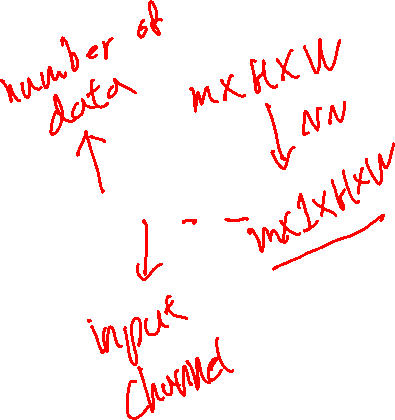 number of
data
mxHxW
NN
mx1xHxW
input
channel